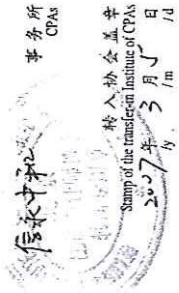 信永中和
事务所
CPAs
转入协会盖章
Stamp of the transfer-in Institute of CPAs
2007年 3月 5日
/y /m /d